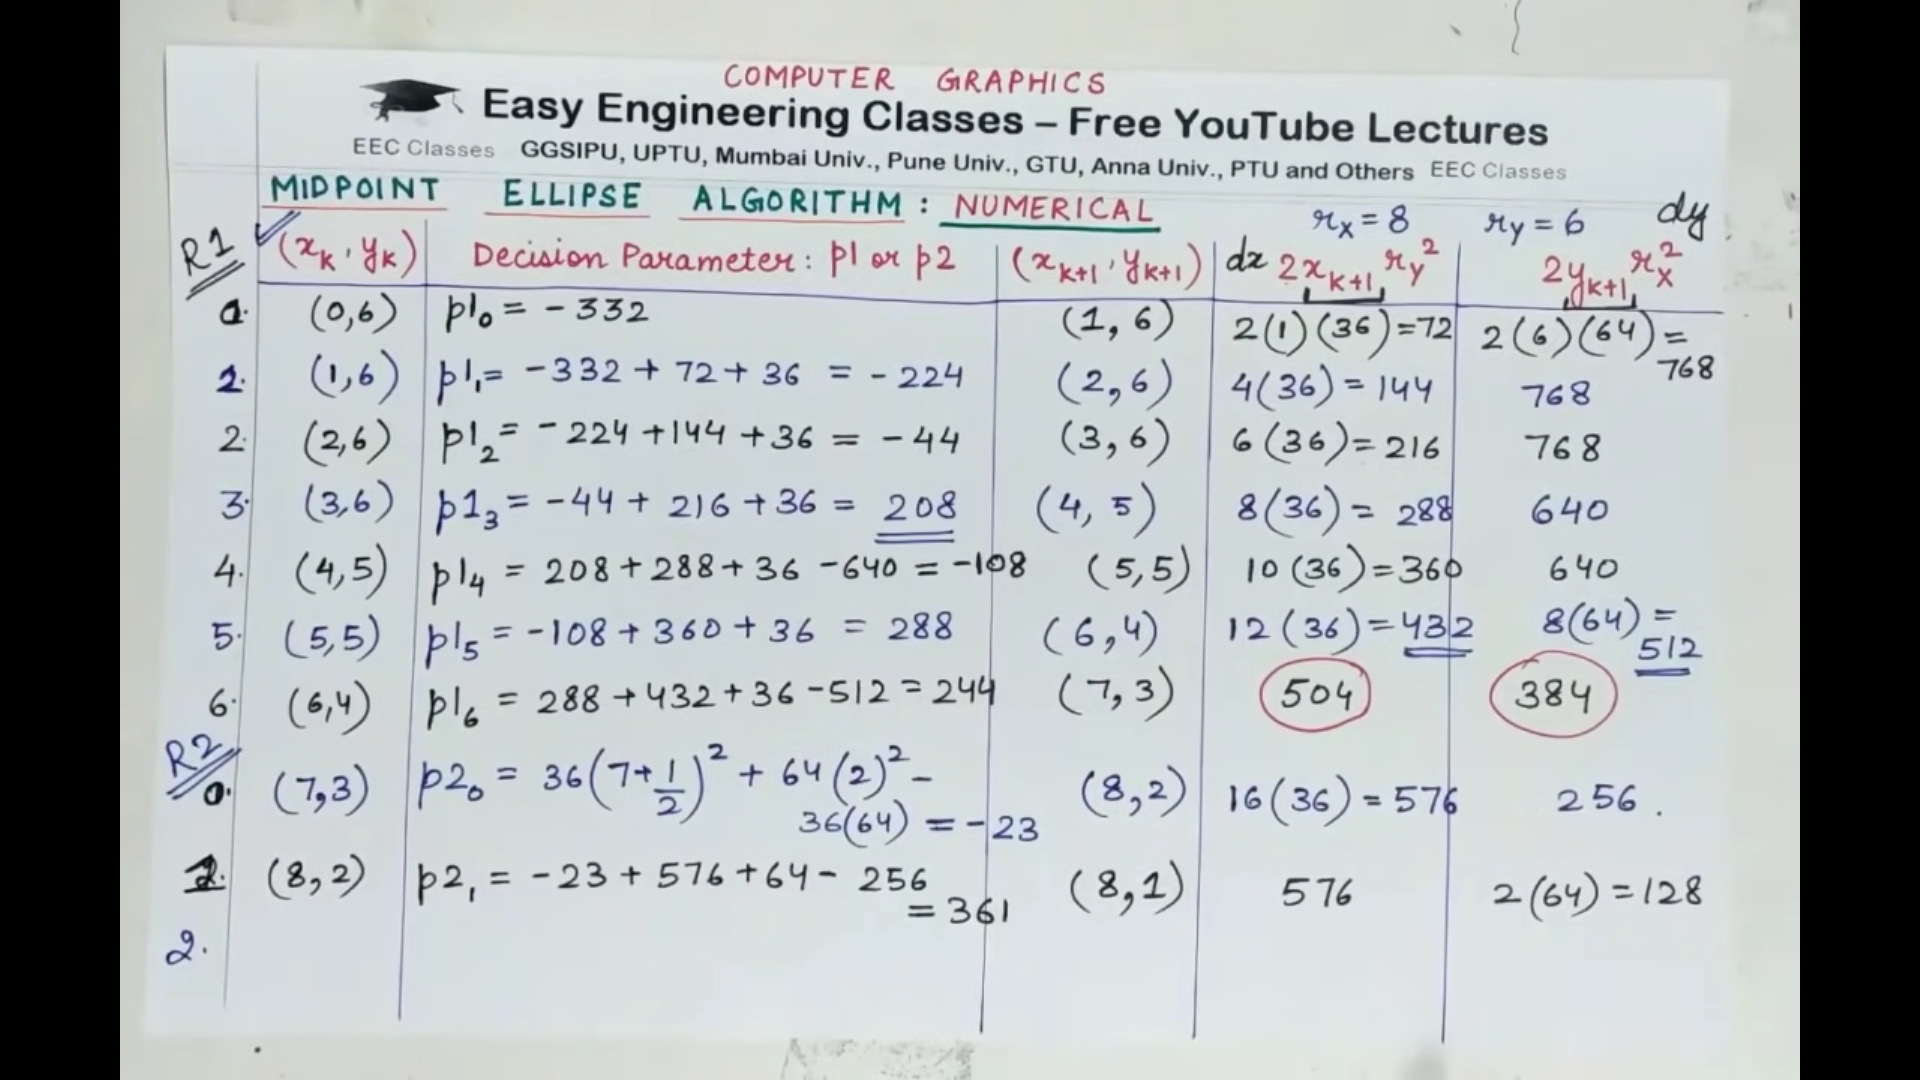 COMPUTER GRAPHICS
Easy Engineering Classes – Free YouTube Lectures
EEC Classes GGSIPU, UPTU, Mumbai Univ., Pune Univ., GTU, Anna Univ., PTU and Others EEC Classes
MIDPOINT ELLIPSE ALGORITHM : NUMERICAL rx = 8 ry = 6 dy
R1 (xk, yk) Decision Parameter: p1 or p2 (xk+1, yk+1) dx 2xk+1 ry² 2yk+1 rx²
0. (0,6) p1₀ = -332 (1, 6) 2(1)(36)=72 2(6)(64)= 768
1. (1,6) p1₁ = -332 + 72 + 36 = -224 (2,6) 4(36) = 144 768
2. (2,6) p1₂ = -224 +144 +36 = -44 (3, 6) 6(36)=216 768
3. (3,6) p1₃ = -44 + 216 +36 = 208 (4, 5) 8(36) = 288 640
4. (4,5) p1₄ = 208+288+36 -640 = -108 (5,5) 10(36)=360 640
5. (5,5) p1₅ = -108+360+36 = 288 (6,4) 12(36)=432 8(64) = 512
6. (6,4) p1₆ = 288 +432+36 -512 = 244 (7,3) 504 384
R2
0. (7,3) p2₀ = 36(7+1/2)² + 64(2)² - 36(64) = -23 (8,2) 16(36) = 576 256.
1. (8,2) p2₁ = -23 + 576 +64 - 256 = 361 (8,1) 576 2(64) = 128
2.